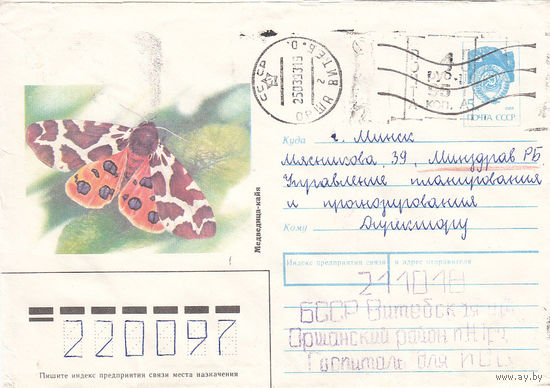 СССР
ВИТЕБ. О.
25039319
ОРША
2
руб.
55
коп.
ПОЧТА СССР
Куда г. Минск
Мясникова, 39, Минздрав РБ
Управление планирования
и прогнозирования
Кому Директору
Медведица-кайя
Индекс предприятия связи и адрес отправителя
211018
БССР Витебская
Оршанский район
Госпиталь для
220097
Пишите индекс предприятия связи места назначения
www.ay.by